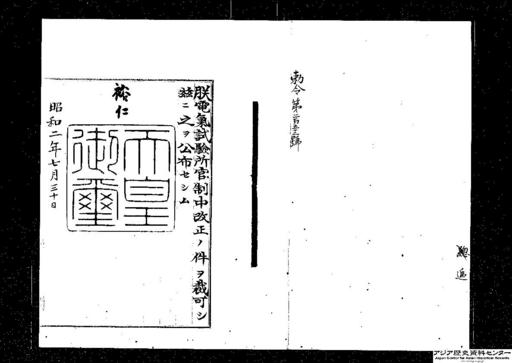 朕電氣試驗所官制中改正ノ件ヲ裁可シ
茲ニ之ヲ公布セシム
裕仁
天皇
御璽
昭和二年七月三十日
勅令第
號
遞
アジア歴史資料センター
Japan Center for Asian Historical Records